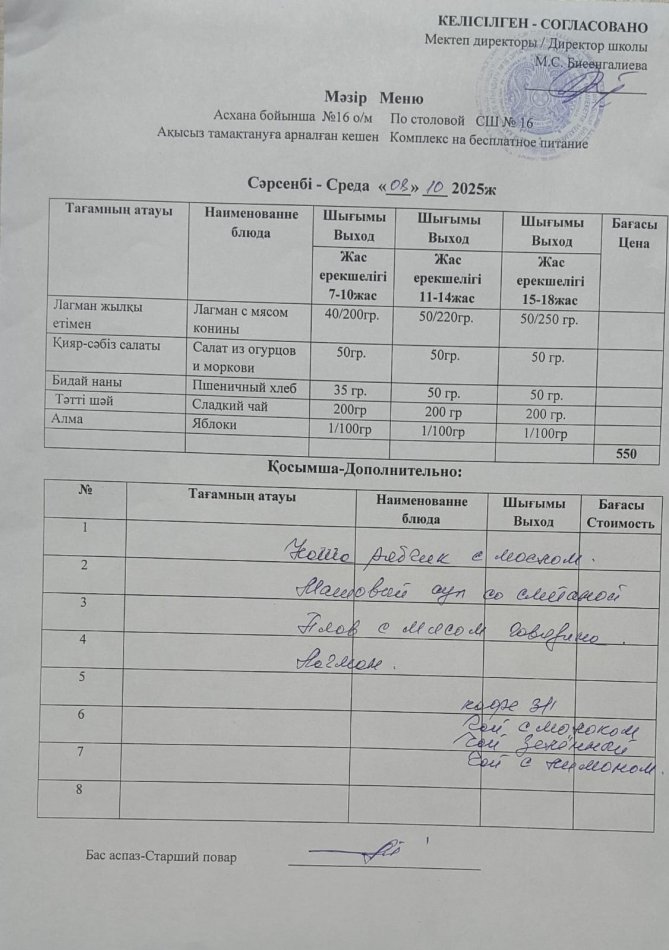 КЕЛІСІЛГЕН - СОГЛАСОВАНО
Мектеп директоры / Директор школы
М.С. Бисенгалиева
Мәзір Меню
Асхана бойынша №16 о/м По столовой СШ № 16
Ақысыз тамақтануға арналған кешен Комплекс на бесплатное питание
Сәрсенбі - Среда «08» 10 2025ж
Тағамның атауы Наименованне блюда Шығымы Выход Шығымы Выход Шығымы Выход Бағасы Цена
Жас ерекшелігі 7-10жас Жас ерекшелігі 11-14жас Жас ерекшелігі 15-18жас
Лагман жылқы етімен Лагман с мясом конины 40/200гр. 50/220гр. 50/250 гр.
Қияр-сәбіз салаты Салат из огурцов и моркови 50гр. 50гр. 50 гр.
Бидай наны Пшеничный хлеб 35 гр. 50 гр. 50 гр.
Тәтті шәй Сладкий чай 200гр 200 гр 200 гр.
Алма Яблоки 1/100гр 1/100гр 1/100гр
550
Қосымша-Дополнительно:
№ Тағамның атауы Наименованне блюда Шығымы Выход Бағасы Стоимость
1
с маслом.
2
Машовый суп со сметаной
3
Плов с мясом говядина.
4
Лагман.
5
кофе 3/1
6
Чай с молоком
Чай зелённый
7
Чай с лимоном.
8
Бас аспаз-Старший повар